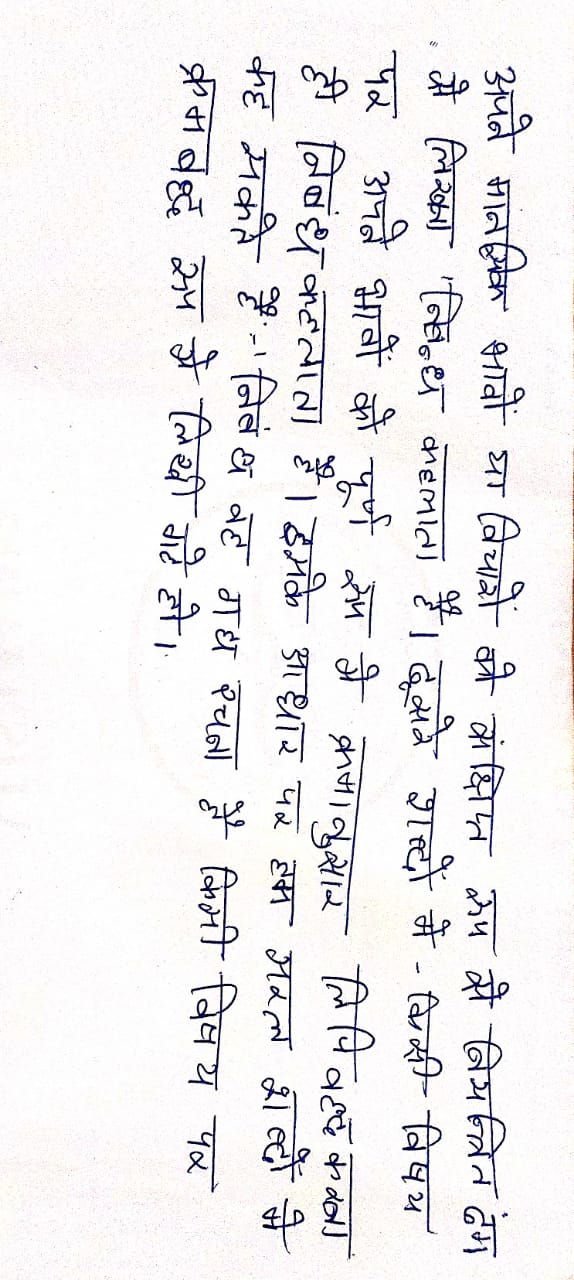 अपने मानसिक भावों या विचारों को संक्षिप्त रूप से नियन्त्रित ढंग
से लिखना 'निबन्ध कहलाता है। दूसरे शब्दों में - किसी विषय
पर अपने भावों को पूर्ण रूप से क्रमानुसार लिपिबद्ध करना
ही निबंध कहलाता है। इसके आधार पर हम सरल शब्दों में
कह सकते हैं:-'निबंध वह गद्य रचना है किसी विषय पर
क्रमबद्ध रूप से लिखी गई हो।